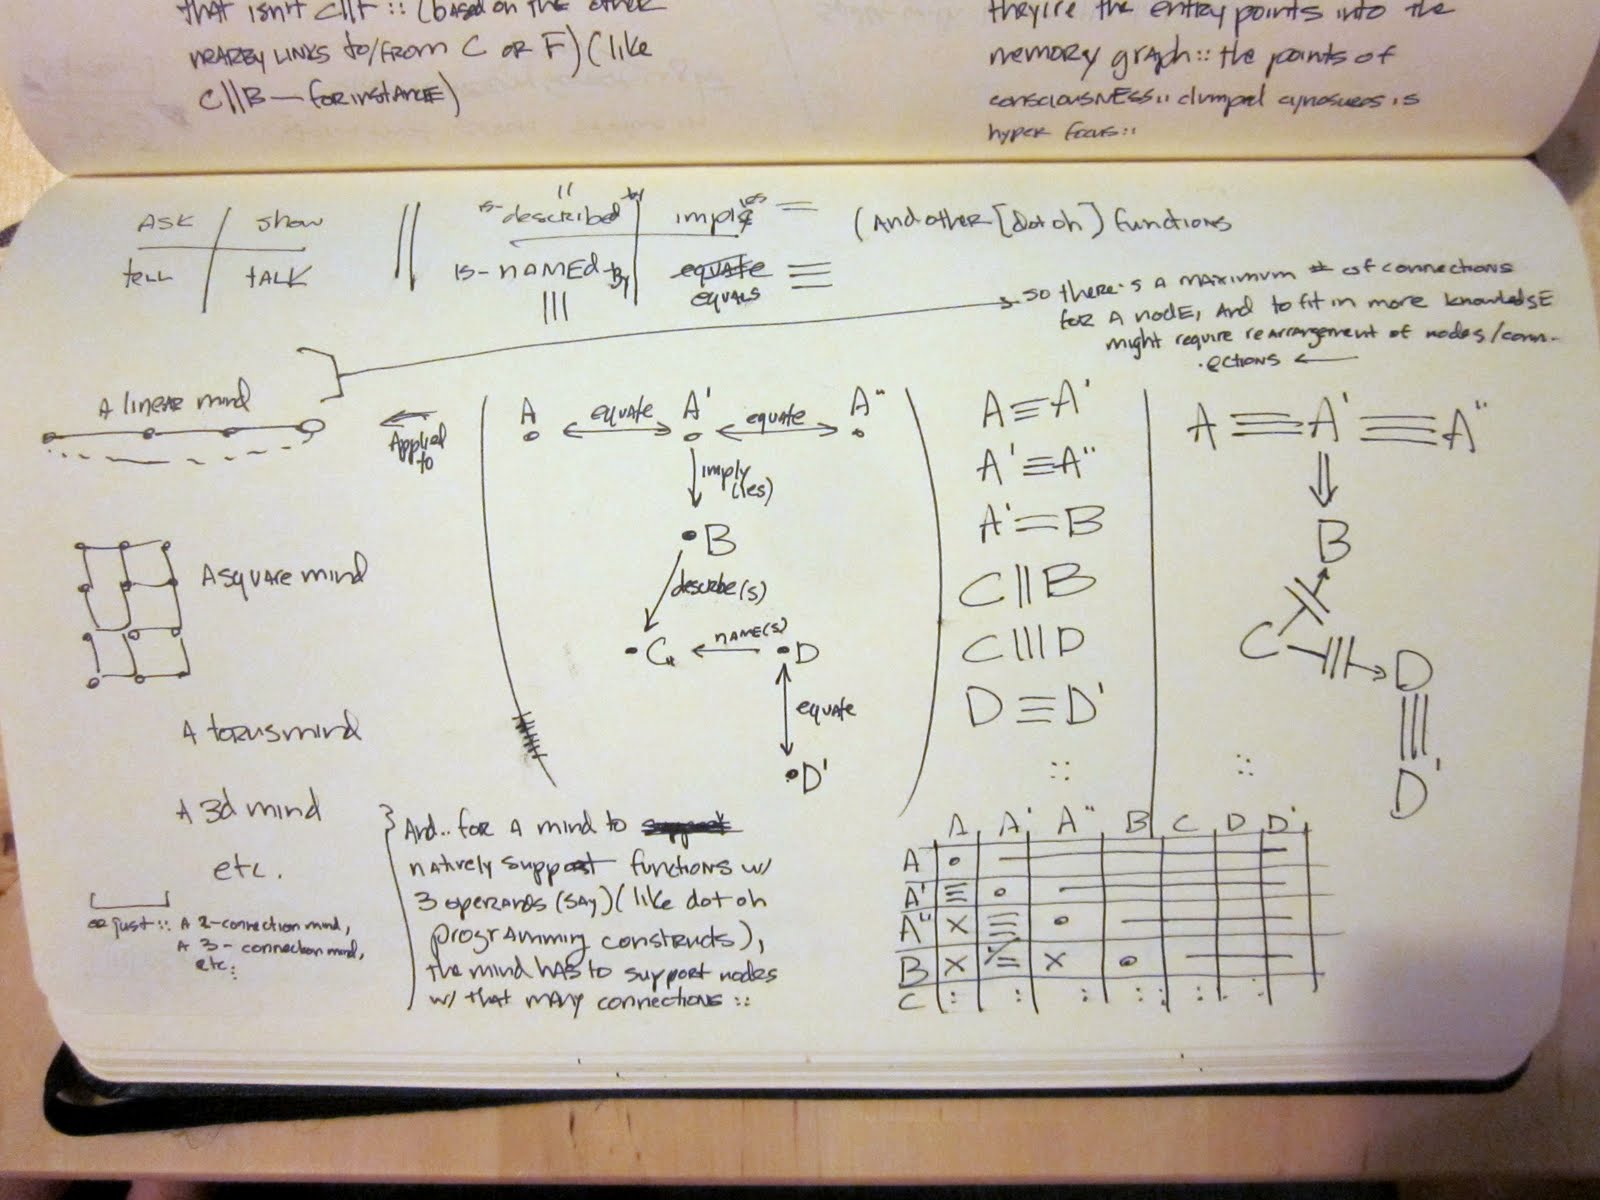 that isn't C||F :: (based on the other
nearby links to/from C or F) (like
C||B — for instance)
they're the entry points into the
memory graph :: the points of
consciousness :: clumped cynosures is
hyper focus ::
ASK show
tell TALK
||
is-described by
||
implies =
is-NAMEd-By
|||
equate
equals ≡
(And other [dot oh] functions
so there's a maximum # of connections
for a node, And to fit in more knowledge
might require rearrangement of nodes/conn-
ections ←
A linear mind
Applied
to
A square mind
A torus mind
A 3d mind
etc.
or just :: A 2-connection mind,
A 3-connection mind,
etc:
A equate A' equate A"
imply
(ies)
B
describe(s)
C NAME(s) D
equate
D'
A≡A'
A'≡A"
A'=B
C||B
C|||D
D≡D'
::
A≡A'≡A"
⇓
B
||
C ||| D
|||
D'
::
And.. for a mind to
natively support functions w/
3 operands (say) (like dot oh
programming constructs),
the mind has to support nodes
w/ that many connections ::
A A' A" B C D D'
A •
A' ≡ •
A" X ≡ •
B X = X •
C : : : :: : : :